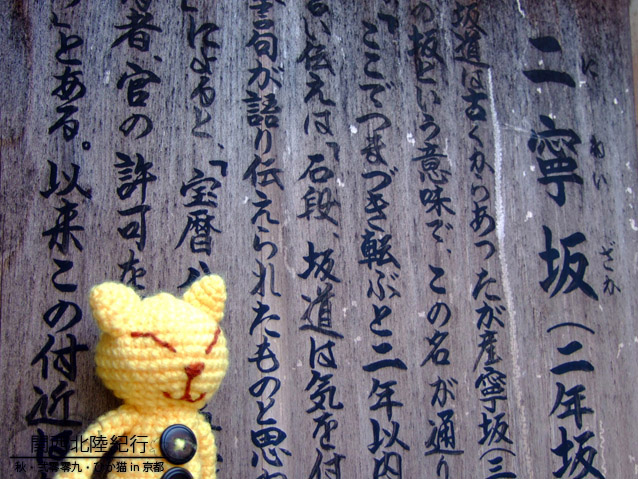 二寧坂(二年坂
にねいざか
坂道は古くからあったが産寧坂(三
の坂という意味で、この名が通り
「ここでつまづき転ぶと二年以内
い伝えは「石段、坂道は気を付
言句が語り伝えられたものと思
」によると、「宝暦八
者、官の許可を
」とある。以来この付近
関西北陸紀行
秋・弐零零九・ぴか猫 in 京都